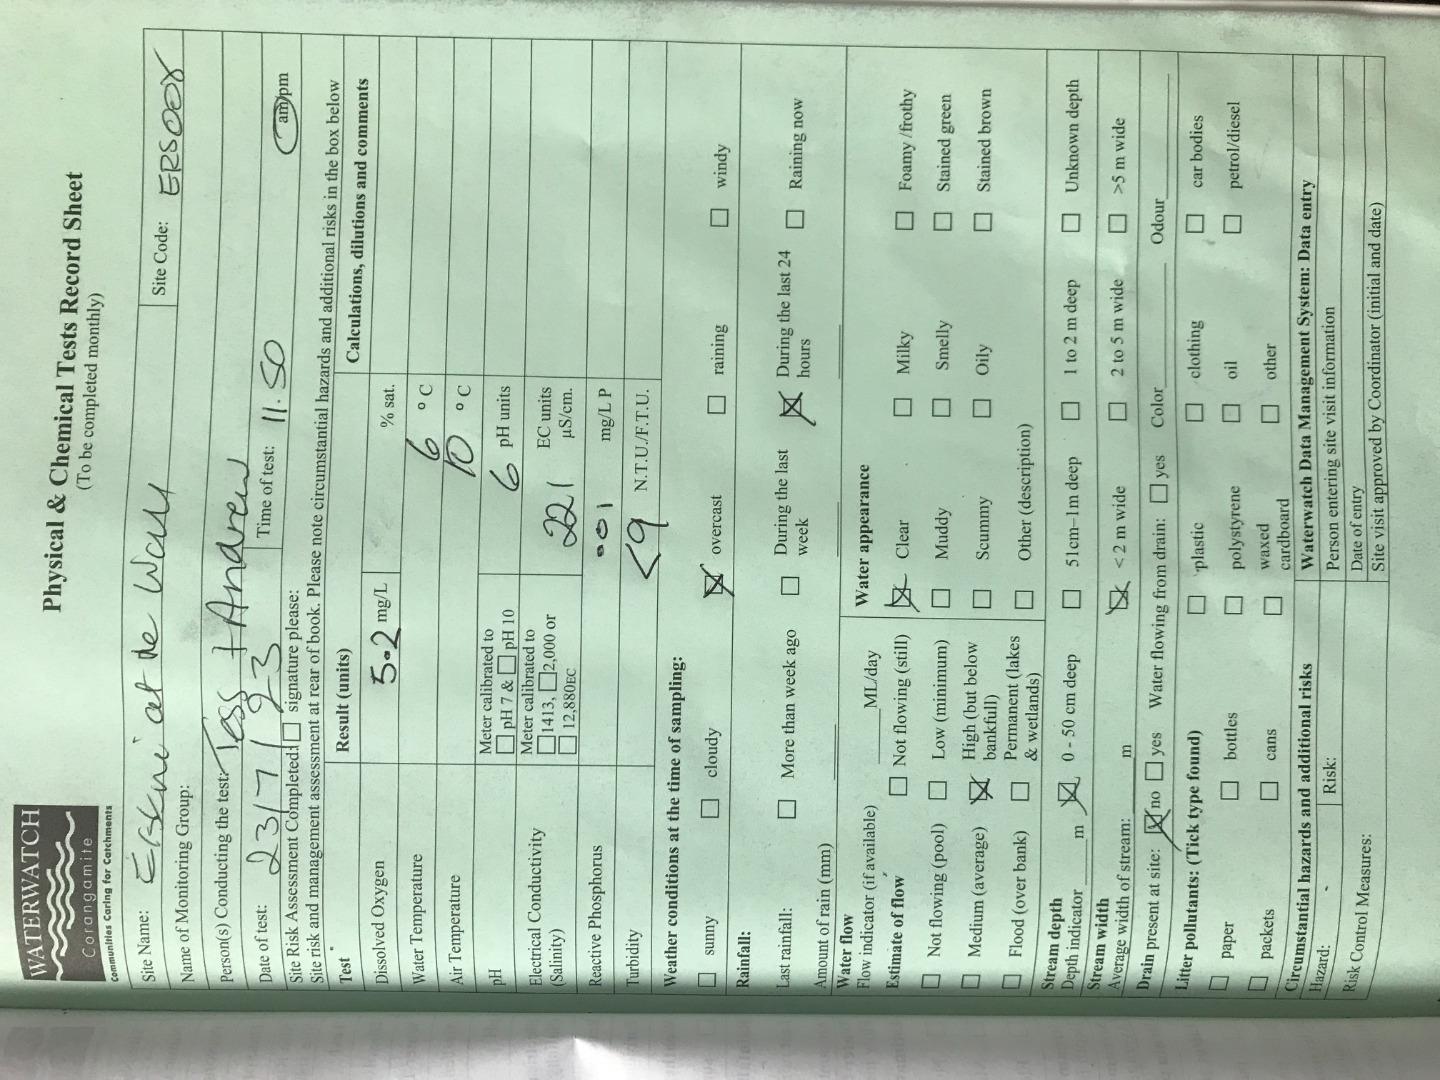 WATERWATCH
Corangamite
Communities Caring for Catchments
Physical & Chemical Tests Record Sheet
(To be completed monthly)
Site Name: Erskine at the Wall Site Code: ERS008
Name of Monitoring Group:
Person(s) Conducting the test: Tess + Andrew
Date of test: 23/7/23 Time of test: 11.50 am/pm
Site Risk Assessment Completed: ☐ signature please:
Site risk and management assessment at rear of book. Please note circumstantial hazards and additional risks in the box below
Test Result (units) Calculations, dilutions and comments
Dissolved Oxygen 5.2 mg/L % sat.
Water Temperature 6 °C
Air Temperature 10 °C
pH Meter calibrated to ☐ pH 7 & ☐ pH 10 6 pH units
Electrical Conductivity (Salinity) Meter calibrated to ☐ 1413, ☐ 2,000 or ☐ 12,880EC 221 EC units µS/cm.
Reactive Phosphorus .001 mg/L P
Turbidity <9 N.T.U./F.T.U.
Weather conditions at the time of sampling:
☐ sunny ☐ cloudy ☒ overcast ☐ raining ☐ windy
Rainfall:
Last rainfall: ☐ More than week ago ☐ During the last week ☒ During the last 24 hours ☐ Raining now
Amount of rain (mm)
Water flow
Flow indicator (if available) ML/day
Estimate of flow ☐ Not flowing (still)
☐ Not flowing (pool) ☐ Low (minimum)
☐ Medium (average) ☒ High (but below bankfull)
☐ Flood (over bank) ☐ Permanent (lakes & wetlands)
Water appearance
☒ Clear ☐ Milky ☐ Foamy /frothy
☐ Muddy ☐ Smelly ☐ Stained green
☐ Scummy ☐ Oily ☐ Stained brown
☐ Other (description)
Stream depth
Depth indicator m ☒ 0 - 50 cm deep ☐ 51cm–1m deep ☐ 1 to 2 m deep ☐ Unknown depth
Stream width
Average width of stream: m ☒ < 2 m wide ☐ 2 to 5 m wide ☐ >5 m wide
Drain present at site: ☒ no ☐ yes Water flowing from drain: ☐ yes Color Odour
Litter pollutants: (Tick type found) ☐ plastic ☐ clothing ☐ car bodies
☐ paper ☐ bottles ☐ polystyrene ☐ oil ☐ petrol/diesel
☐ packets ☐ cans ☐ waxed cardboard ☐ other
Circumstantial hazards and additional risks
Hazard: Risk:
Risk Control Measures:
Waterwatch Data Management System: Data entry
Person entering site visit information
Date of entry
Site visit approved by Coordinator (initial and date)